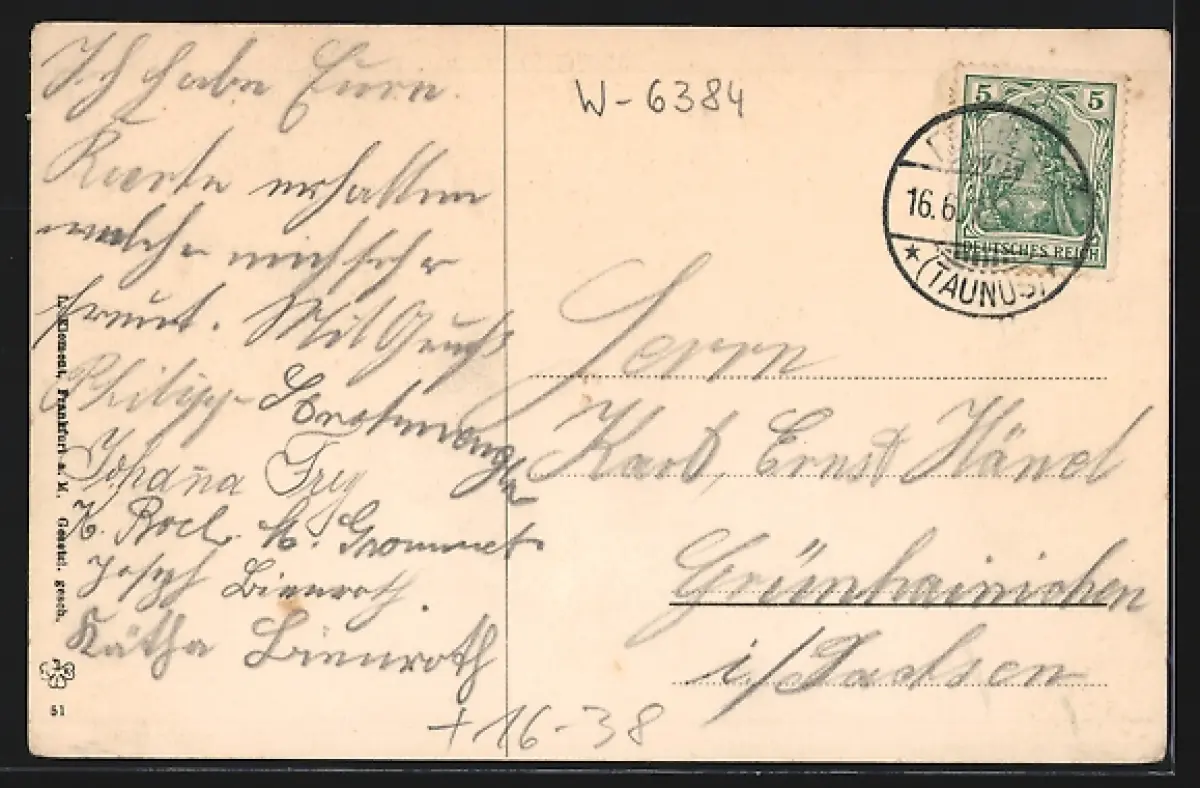 Ich habe Eure
Karte erhalten
welche mich sehr
freut. Mit Gruß
Philipp
Johanna Frey
K. Rock. M. Grommet
Joseph Bienroth.
Kätha Bienroth
L. Klement, Frankfurt a. M. Gesetzl. gesch.
51
W-6384
5 5
DEUTSCHES REICH
16.6
* (TAUNUS) *
Herrn
Karl, Ernst Hänel
Grünhainichen
i/Sachsen
+ 16-38